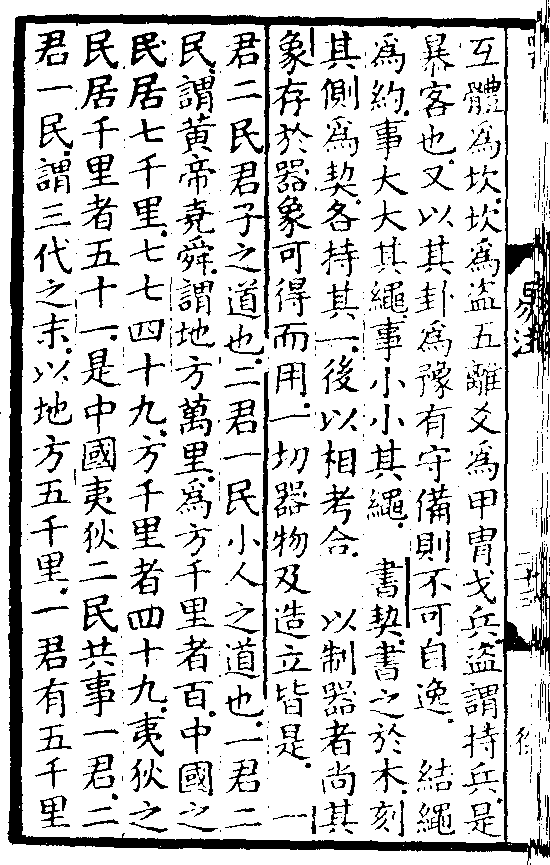 互體爲坎坎爲盗五離爻爲甲胄戈兵盗謂持兵是
暴客也又以其卦爲豫有守備則不可自逸　結繩
爲約事大大其繩事小小其繩　書契書之於木刻
其側爲契各持其一後以相考合　以制器者尚其
象存於器象可得而用一切器物及造立皆是　一
君二民君子之道也二君一民小人之道也一君二
民謂黄帝堯舜謂地方萬里爲方千里者百中國之
民居七千里七七四十九方千里者四十九夷狄之
民居千里者五十一是中國夷狄二民共事一君二
君一民謂三代之末以地方五千里一君有五千里
易注